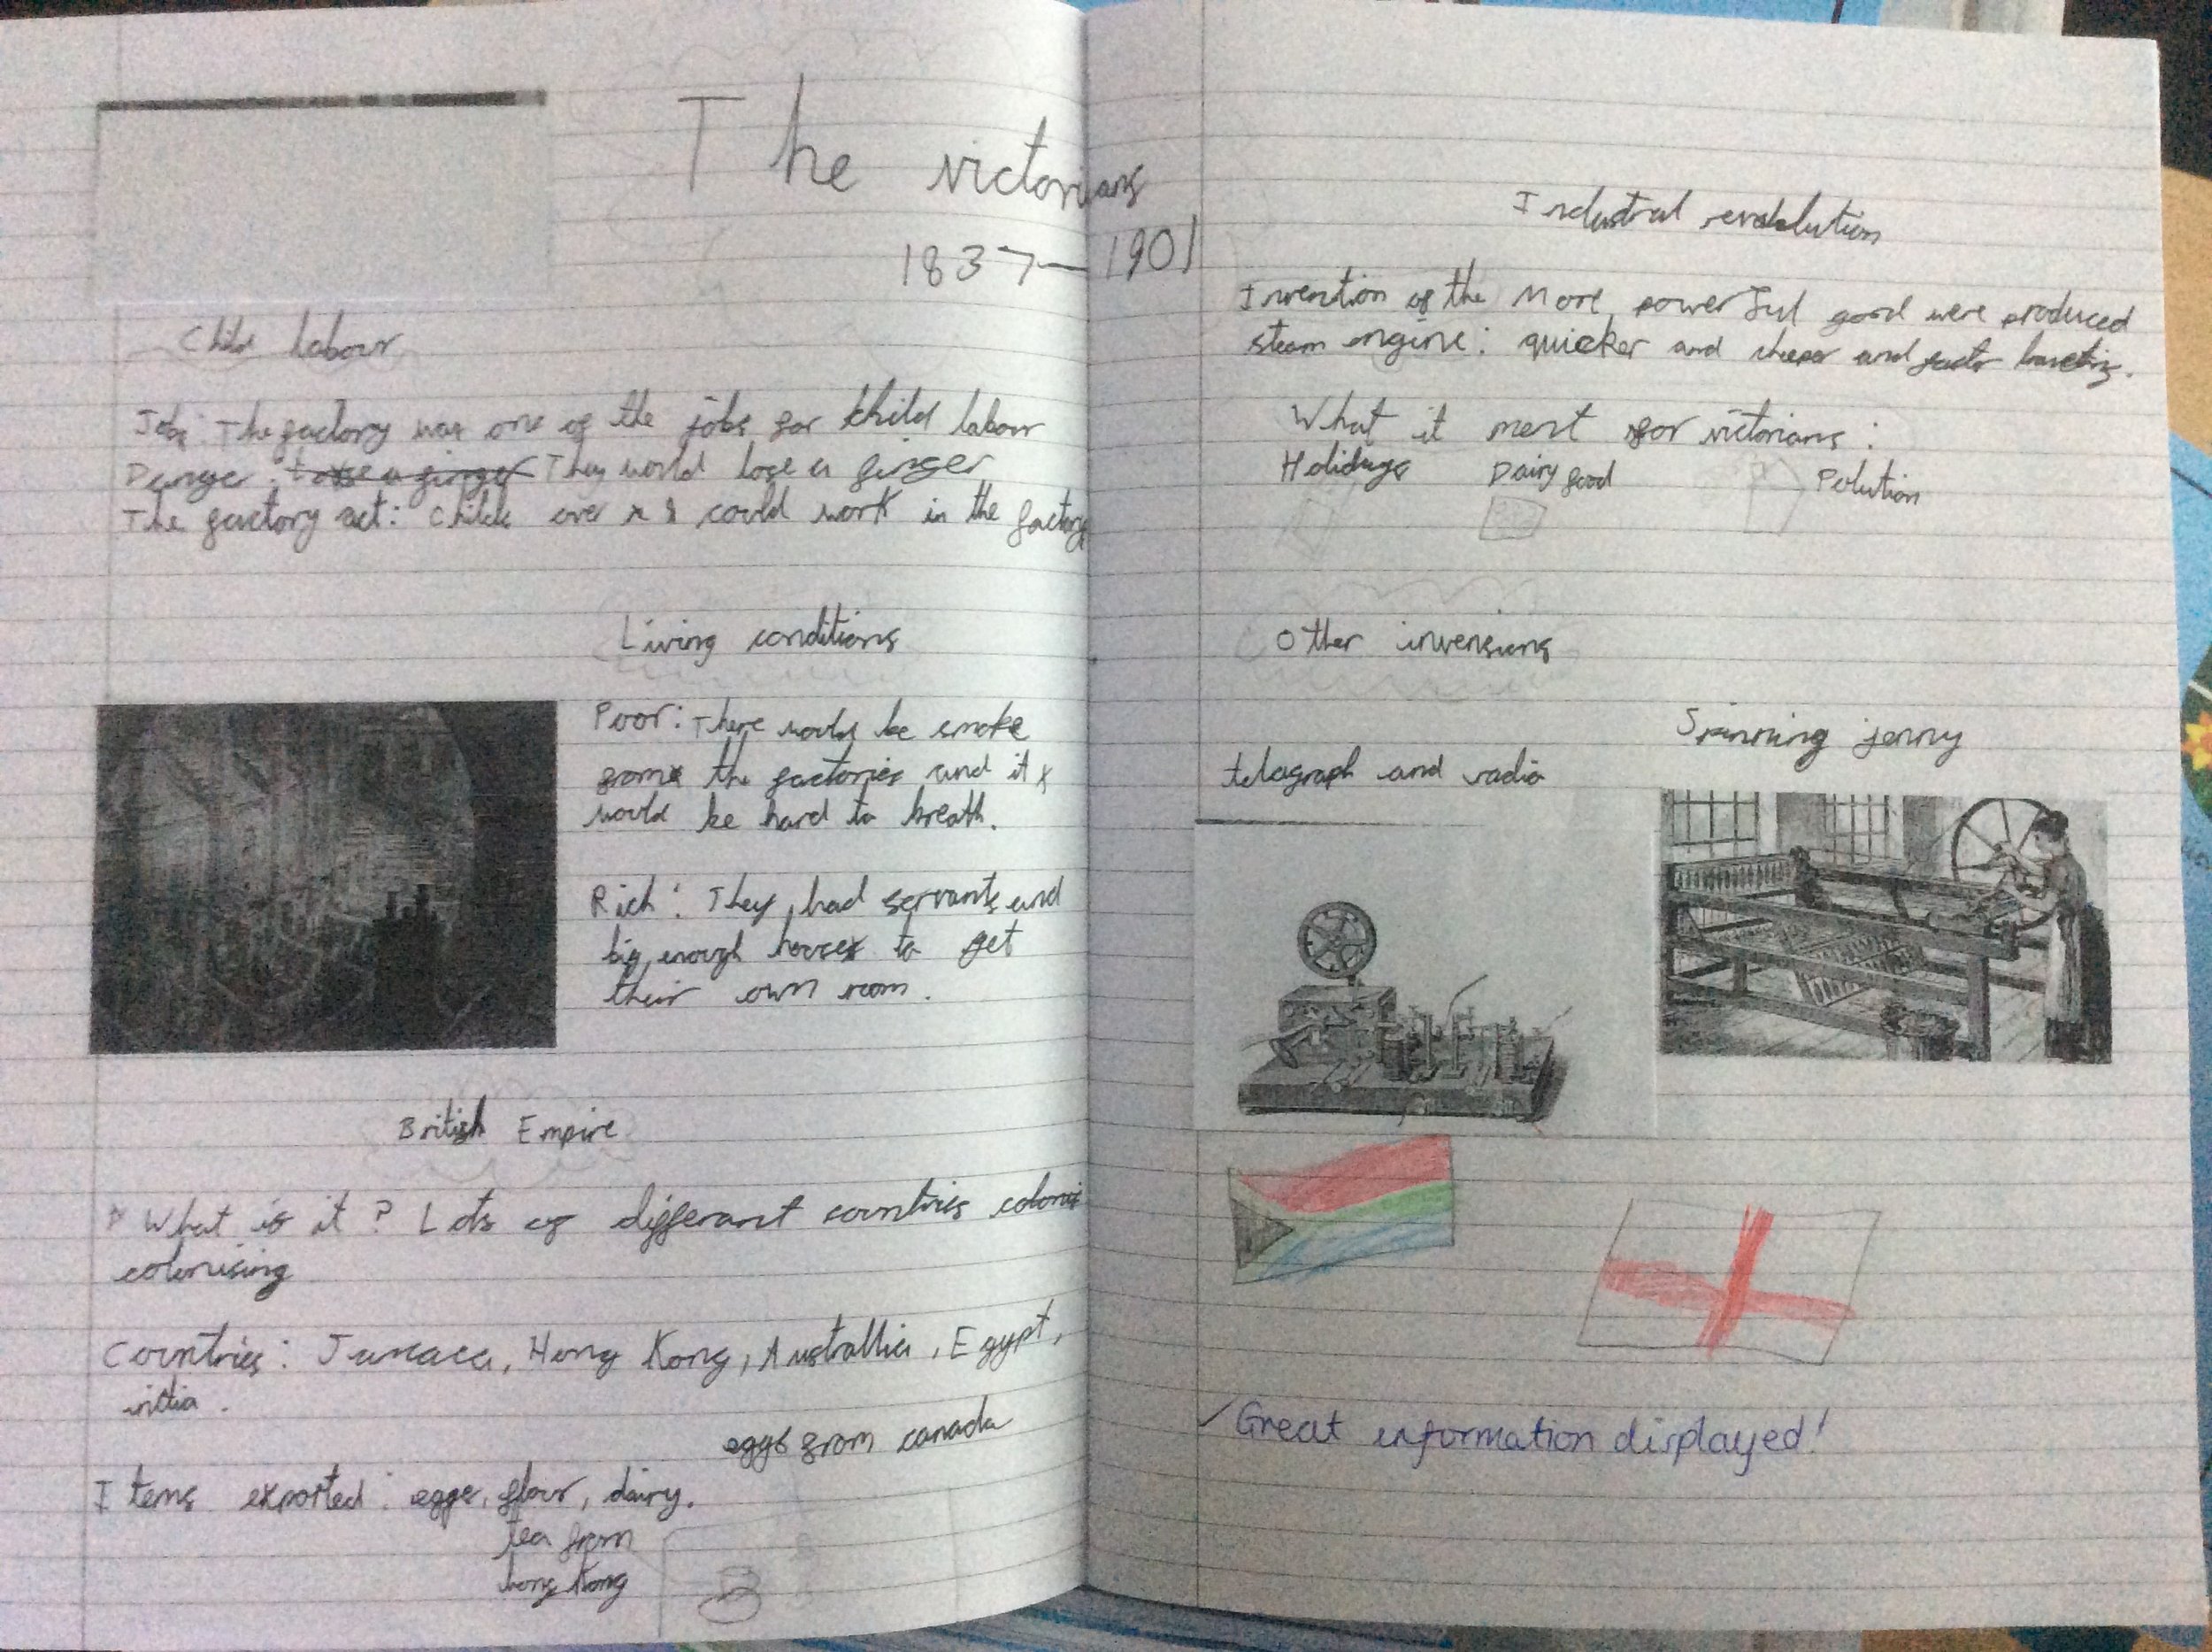 The victorians
1837-1901
Child labour
Jobs: The factory was one of the jobs for child labour
Danger: They would lose a finger
The factory act: childs over 8 could work in the factory
Living conditions
Poor: There would be smoke
from the factories and it
would be hard to breath.
Rich: They had servants and
big enough houses to get
their own room.
British Empire
What is it? Lots of differant countries coloni
colonising
Countries: Jamaca, Hong Kong, Australlia, Egypt,
india.
eggs from canada
Items exported: eggs, flour, dairy.
tea from
hong Kong
Industral revolution
Invention of the More powerful good were produced
steam engine: quicker and cheeper and
What it ment for victorians:
Holidays Dairy food Polution
Other invensions
Spinning jenny
telagraph and radio
Great information displayed!